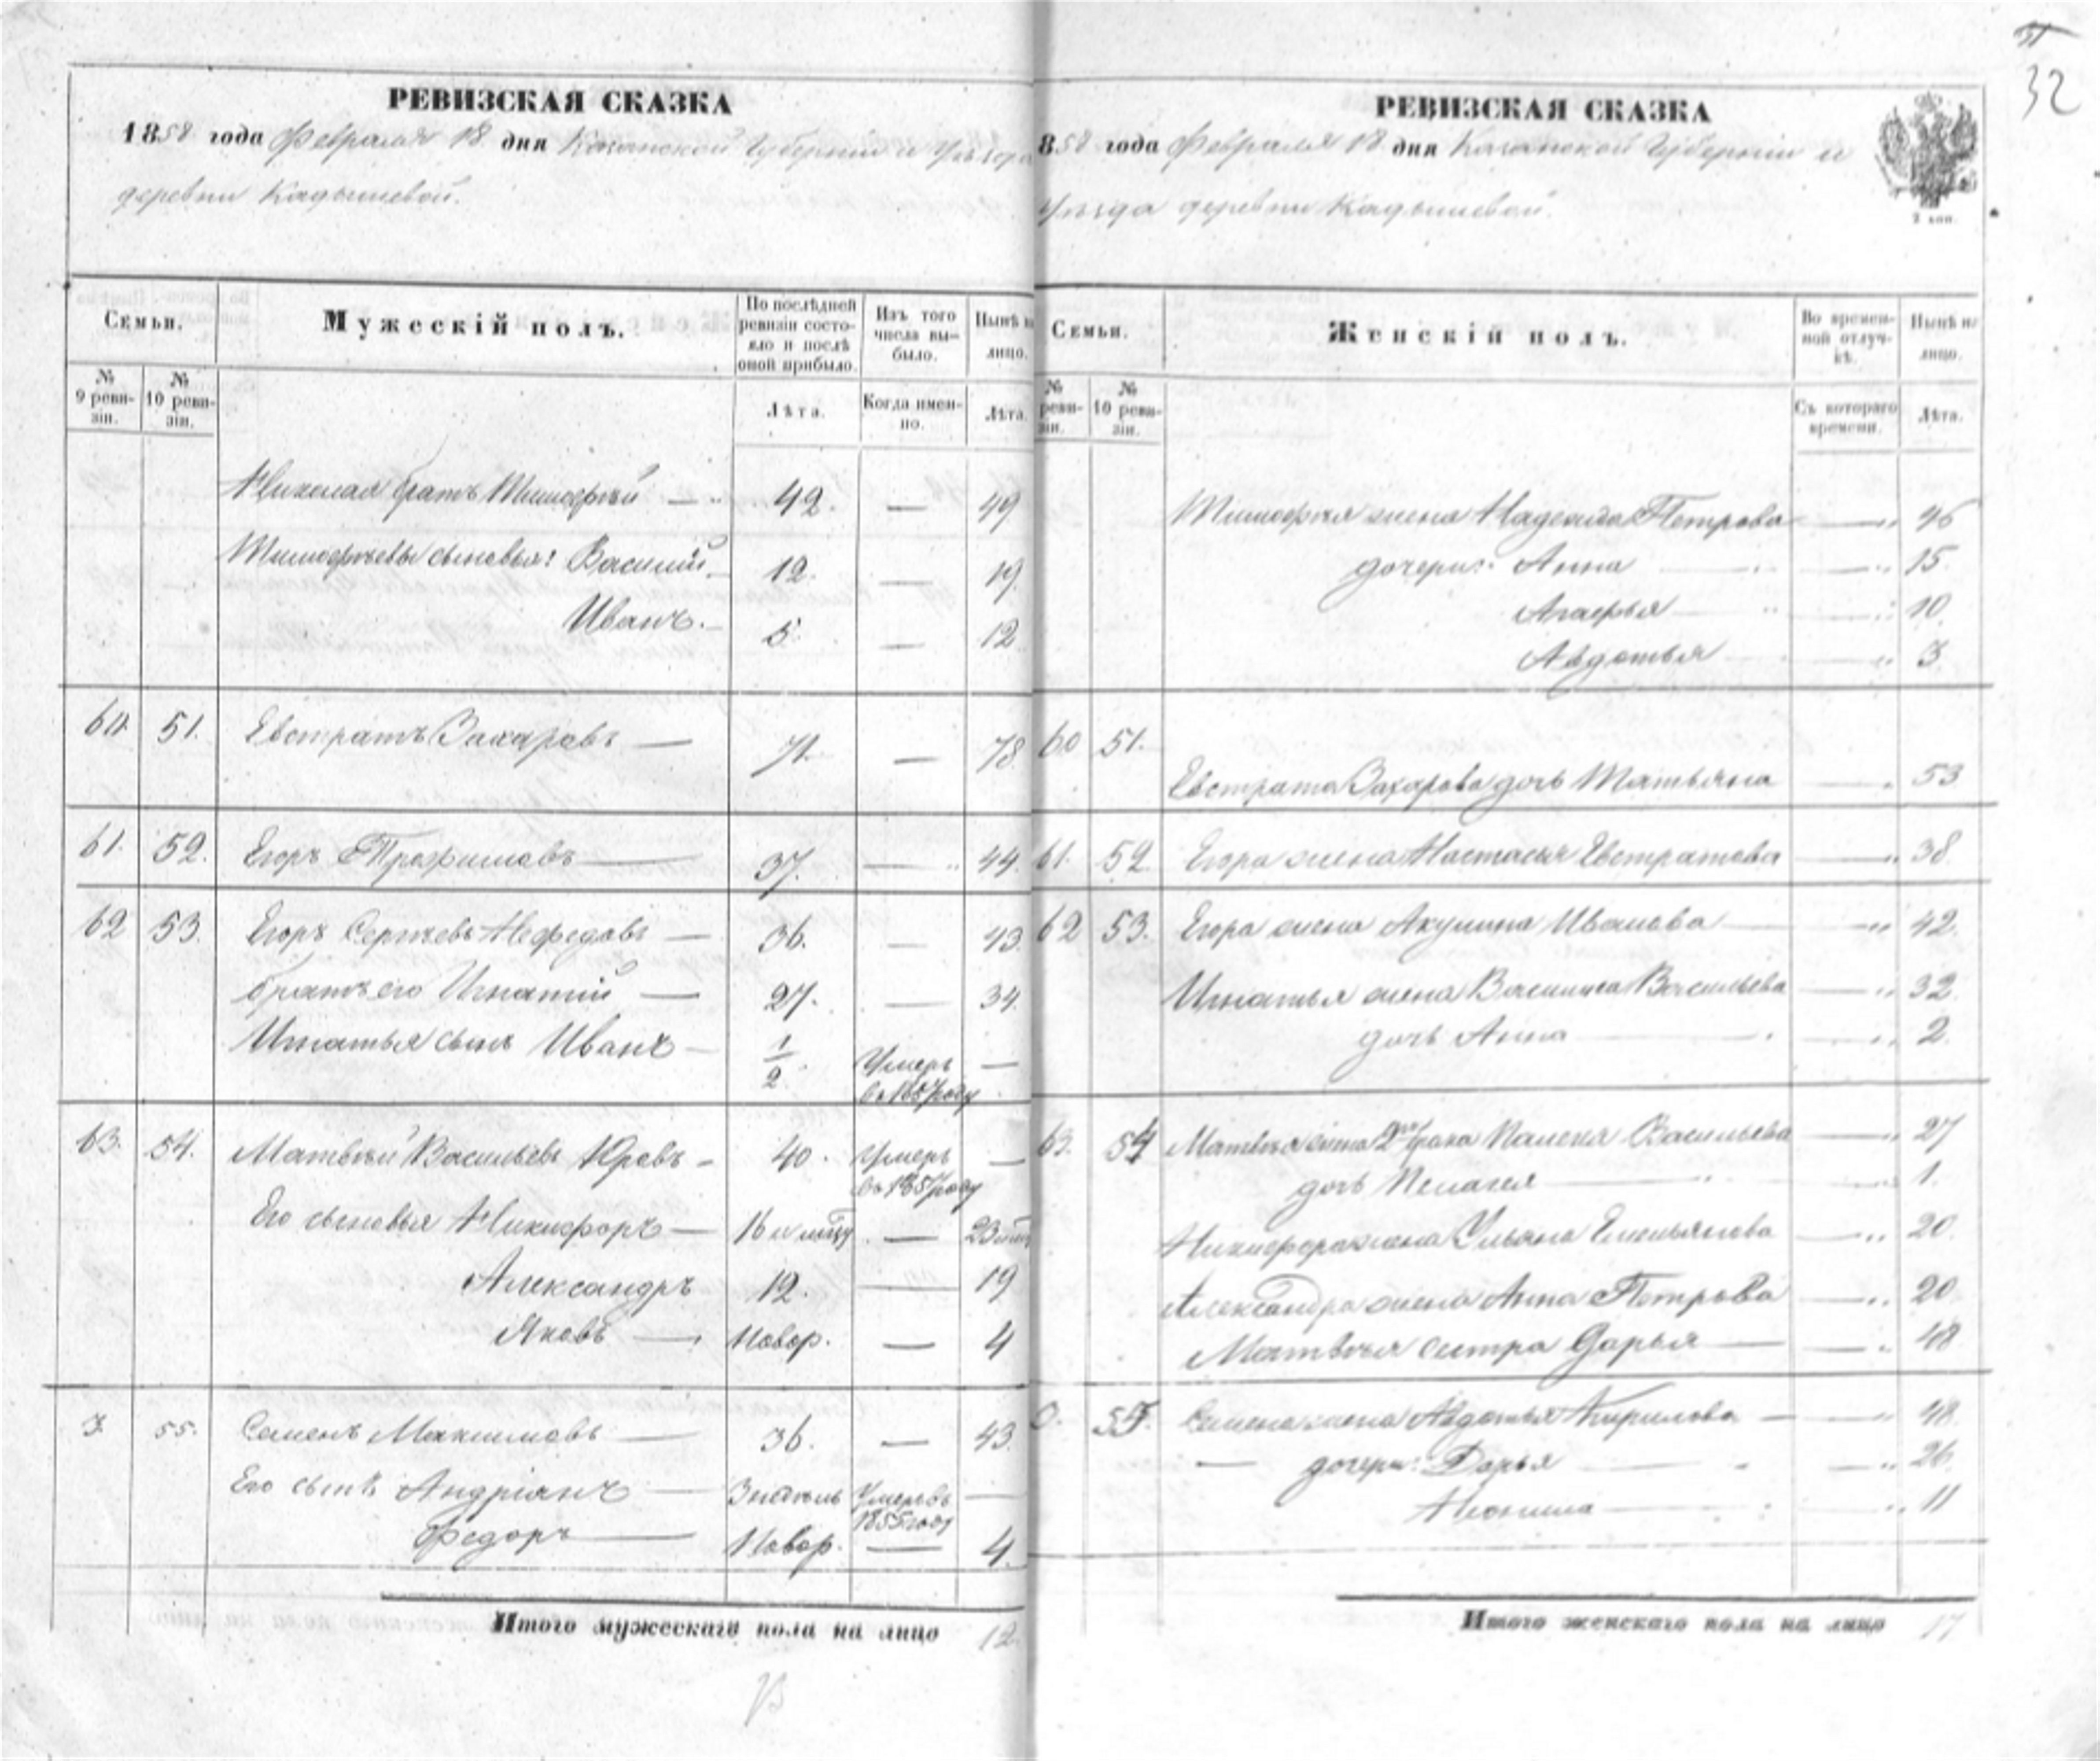 32
РЕВИЗСКАЯ СКАЗКА
1858 года Февраля 18 дня Казанской Губерніи и Уѣзда
деревни Кадышевой.
Семьи.
Мужескій полъ.
По послѣдней ревизіи состояло и послѣ оной прибыло.
Изъ того числа выбыло.
Нынѣ на лицо.
№ 9 ревизіи.
№ 10 ревизіи.
Лѣта.
Когда именно.
Лѣта.
Николая братъ Тимофѣй — 42. — 49
Тимофѣевы сыновья: Василій 12. — 19.
Иванъ. 5. — 12
60. 51. Евстратъ Захаровъ — 71. — 78.
61. 52. Егоръ Трофимовъ — 37. — 44.
62 53. Егоръ Сергѣевъ Нефедовъ — 36. — 43.
братъ его Игнатій — 27. — 34.
Игнатья сынъ Иванъ — 1/2 Умеръ въ 1857 году —
63. 54. Матвѣй Васильевъ Юровъ — 40. Умеръ въ 1857 году —
Его сыновья Никифоръ — 16 — 23
Александръ 12. — 19
Яковъ — Новор. — 4
3. 55. Семенъ Максимовъ — 36. — 43.
Его сынъ Андріянъ — 3 Умеръ въ 1855 году —
Федоръ — Новор. — 4.
Итого мужескаго пола на лицо 12.
РЕВИЗСКАЯ СКАЗКА
858 года Февраля 18 дня Казанской Губерніи и
Уѣзда деревни Кадышевой.
2 коп.
Семьи.
Женскій полъ.
Во временной отлучкѣ.
Нынѣ на лицо.
№ ревизіи.
№ 10 ревизіи.
Съ котораго времени.
Лѣта.
Тимофея жена Надежда Петрова — 46
дочери: Анна — 15.
Агафья — 10.
Авдотья — 3.
60 51. Евстрата Захарова дочь Татьяна — 53
61. 52. Егора жена Настасья Евстратова — 38.
62 53. Егора жена Акулина Иванова — 42.
Игнатья жена Василиса Васильева — 32.
дочь Анна — 2.
63. 54 Матвѣя жена 2го брака Пелагея Васильева — 27
дочь Пелагея — 1.
Никифора жена Ульяна Емельянова — 20.
Александра жена Анна Петрова — 20
Матвѣя сестра Дарья — 48
55. Семена жена Авдотья Кирилова — 48.
— дочери: Дарья — 26.
— 11
Итого женскаго пола на лицо 17